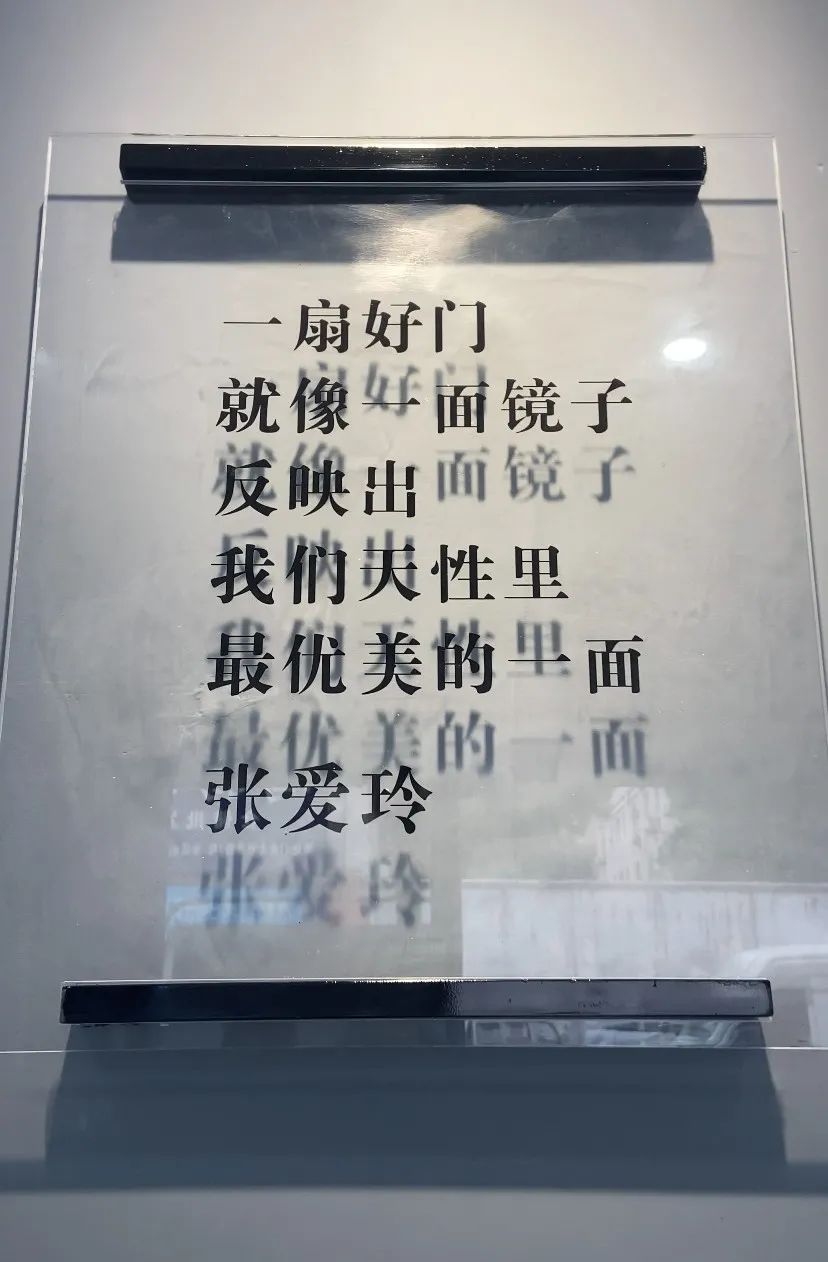 一扇好门
就像一面镜子
反映出
我们天性里
最优美的一面
张爱玲